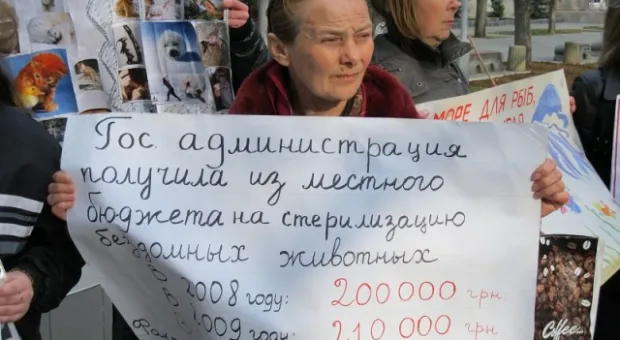 Гос. администрация
получила из местного
бюджета на стерилизацию
бездомных животных
2008 году: 200 000 грн.
2009 году: 210 000 грн
МОРЕ ДЛЯ РЫБ,
Coffee